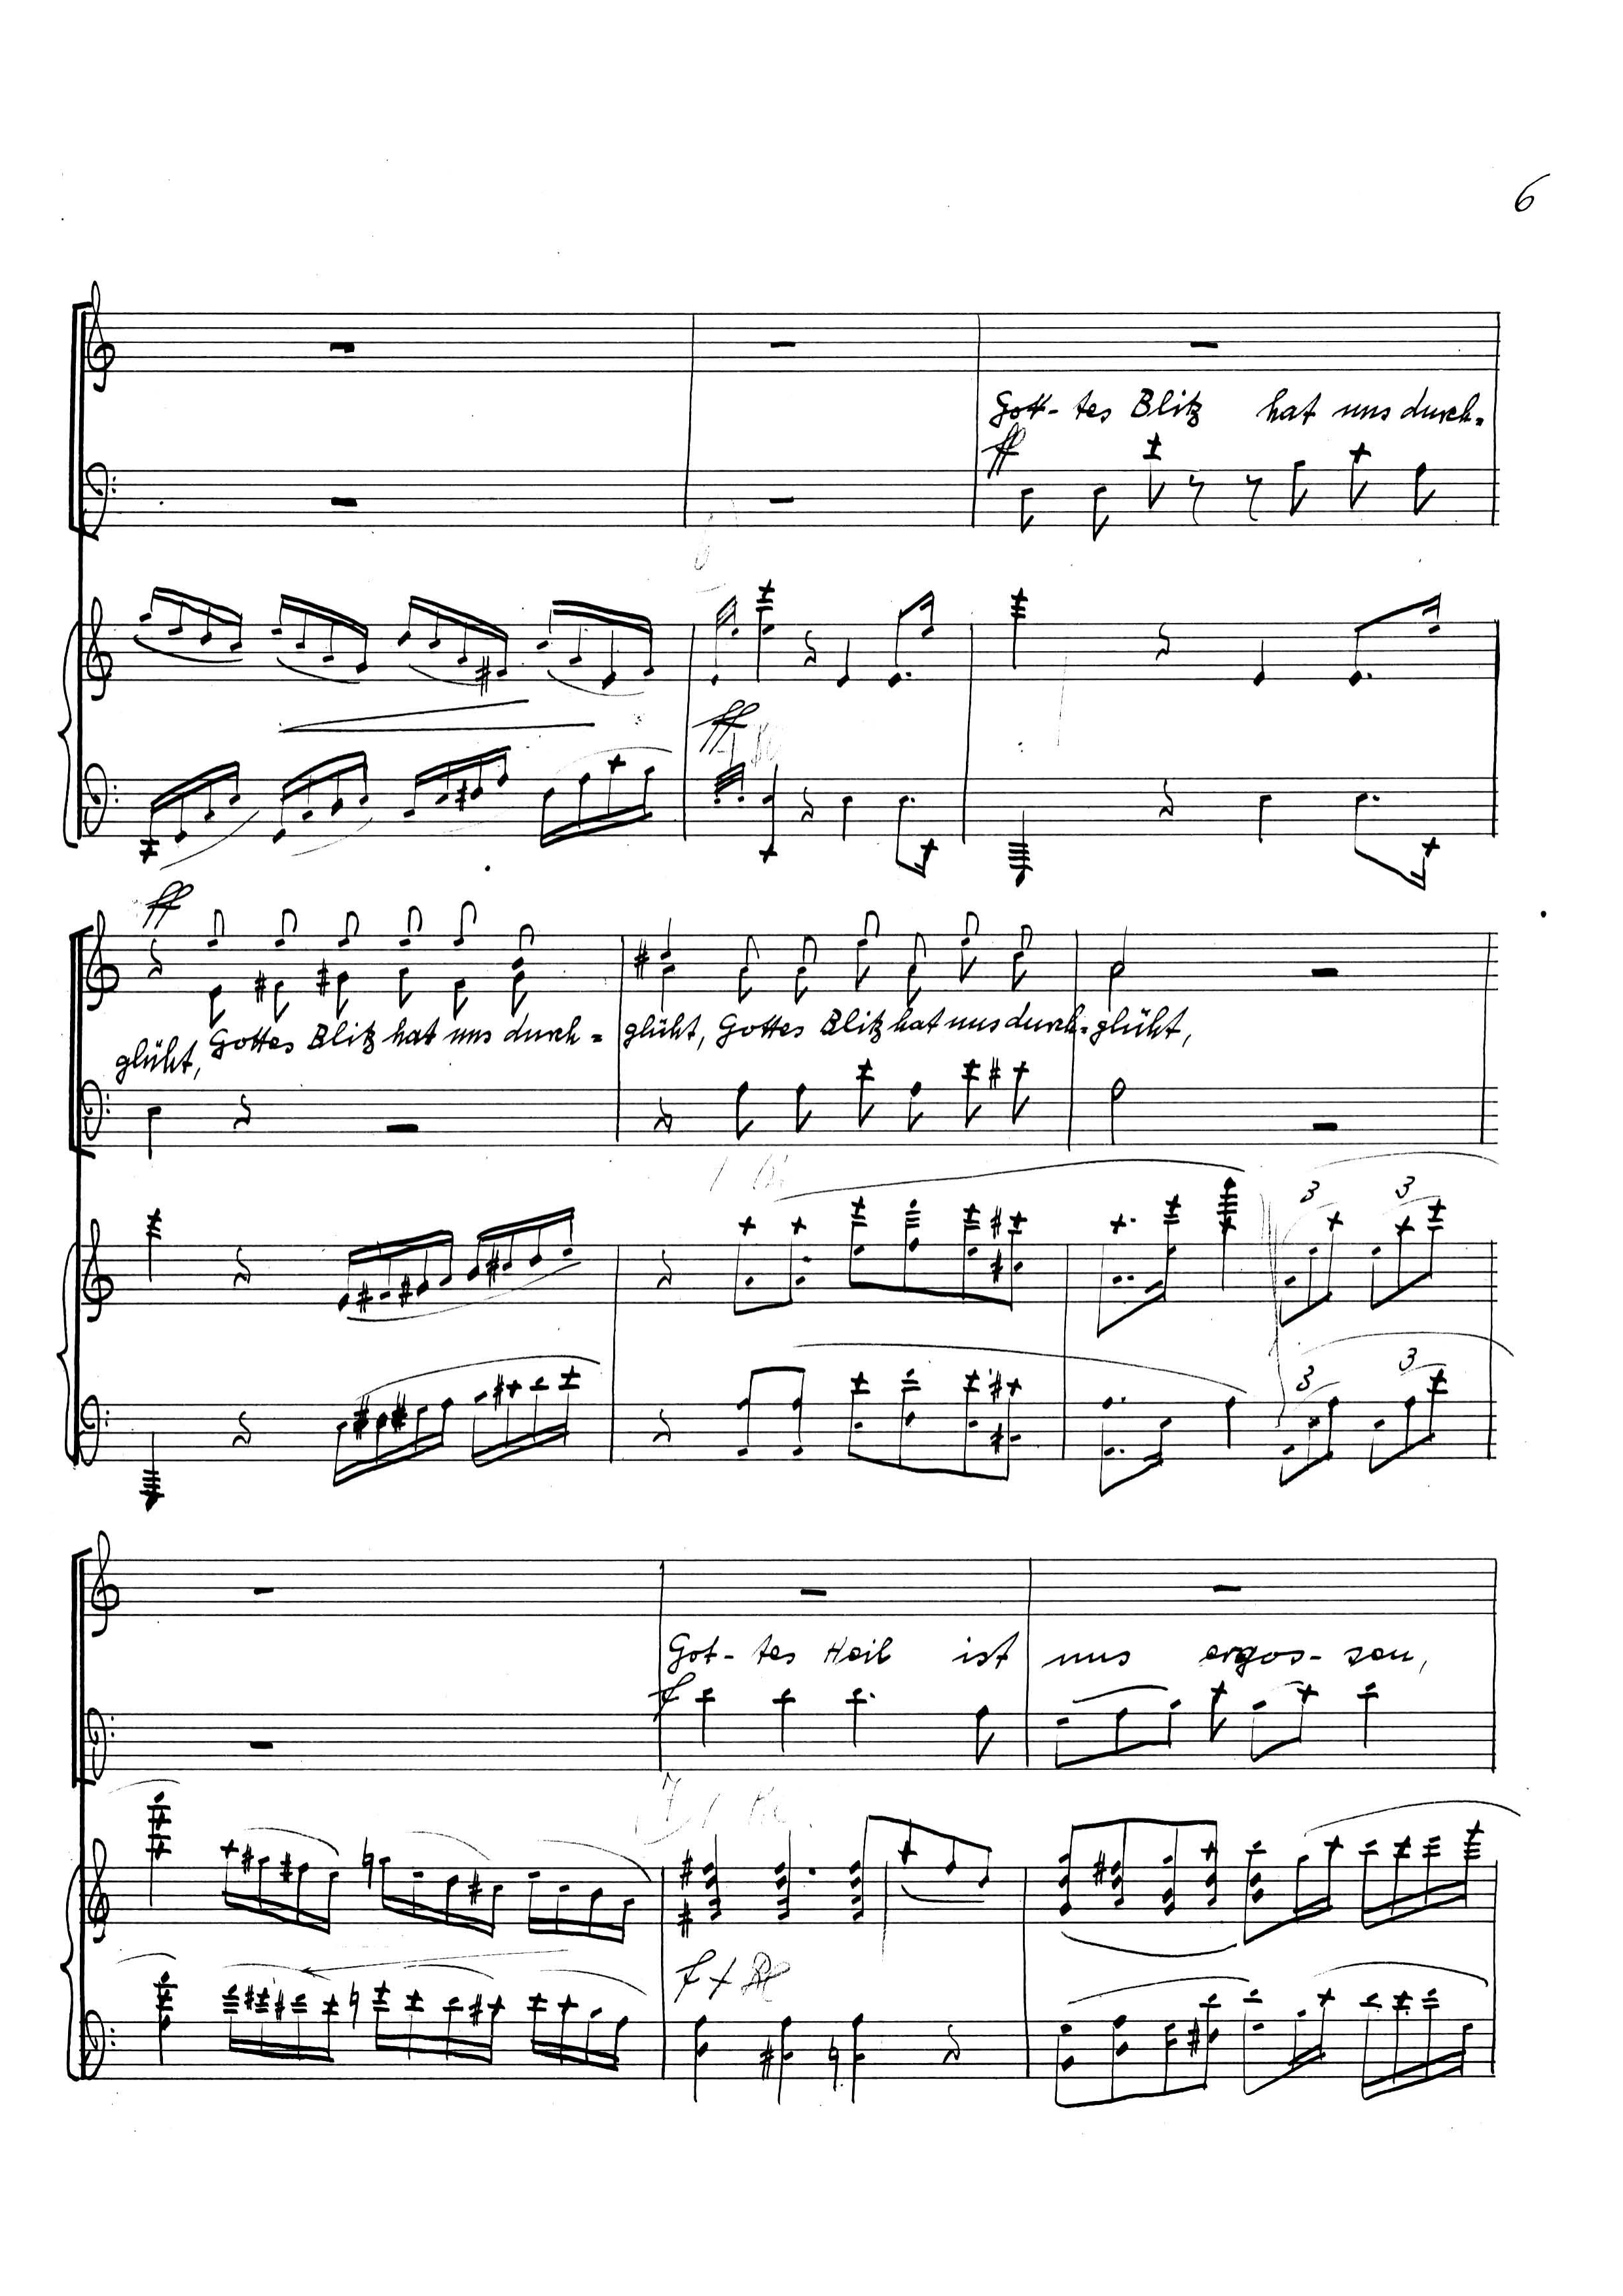 6
Got-tes Blitz hat uns durch-
ff
ff
ff
glüht, Gottes Blitz hat uns durch-glüht, Gottes Blitz hat uns durch-glüht,
3 3
3 3
Got-tes Heil ist uns ergos-sen,
f
f